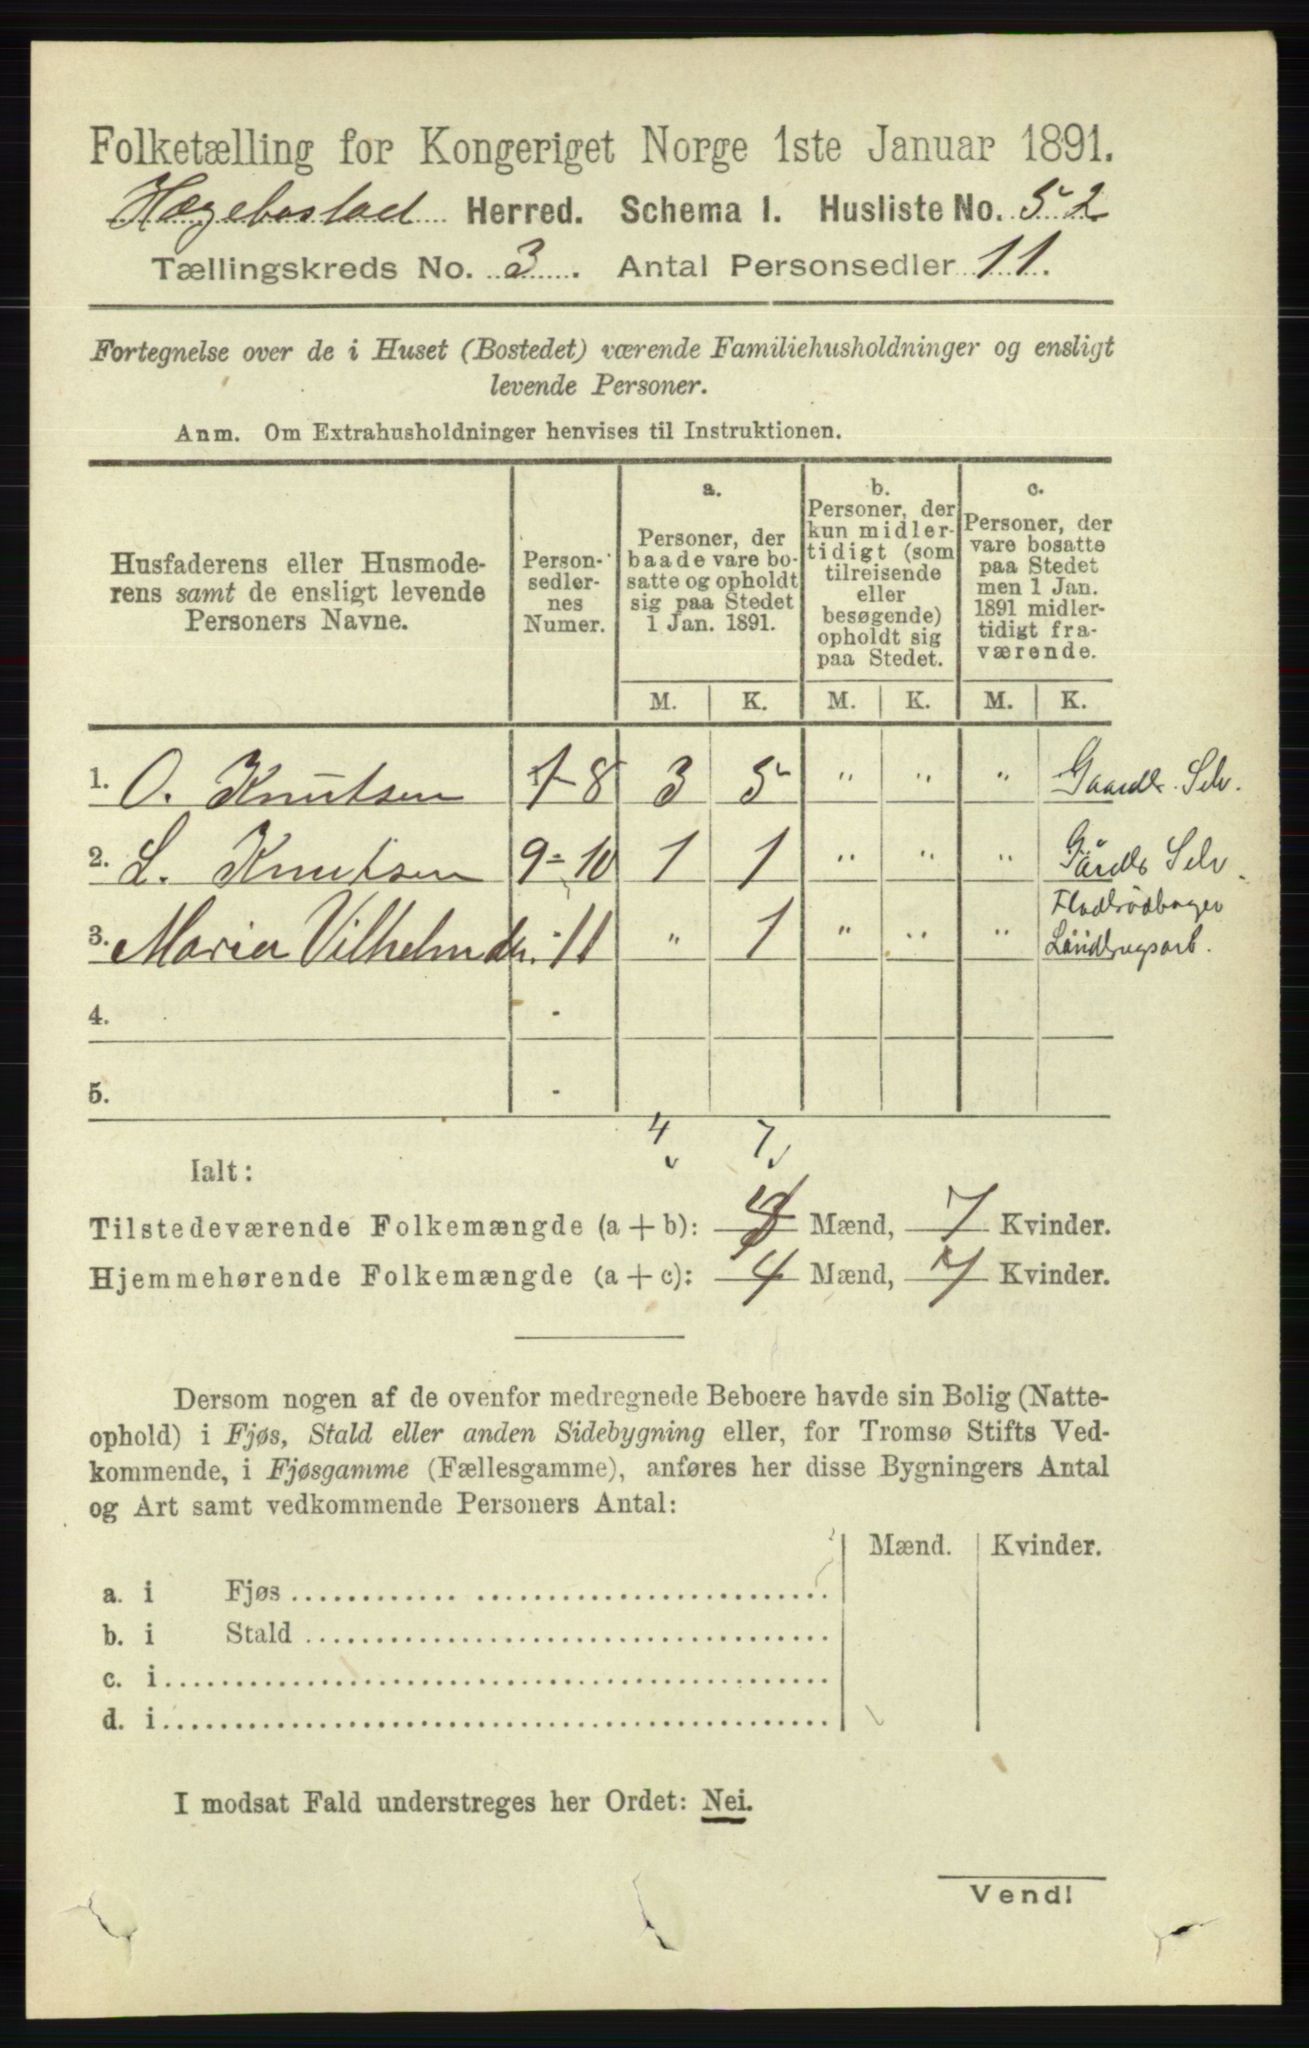 Folketælling for Kongeriget Norge 1ste Januar 1891.
Hægebostad Herred. Schema I. Husliste No. 52
Tællingskreds No. 3. Antal Personsedler 11.
Fortegnelse over de i Huset (Bostedet) værende Familiehusholdninger og ensligt
levende Personer.
Anm. Om Extrahusholdninger henvises til Instruktionen.
Husfaderens eller Husmode-
rens samt de ensligt levende
Personers Navne.
Person-
sedler-
nes
Numer.
a.
Personer, der
baade vare bo-
satte og opholdt
sig paa Stedet
1 Jan. 1891.
b.
Personer, der
kun midler-
tidigt (som
tilreisende
eller
besøgende)
opholdt sig
paa Stedet.
c.
Personer, der
vare bosatte
paa Stedet
men 1 Jan.
1891 midler-
tidigt fra-
værende.
M. K. M. K. M. K.
1. O. Knutsen 1-8 3 5 " " " Gaardb. Selv.
2. L. Knutsen 9-10 1 1 " " " Gårdb Selv
3. Maria Vilhelmsdtr. - 11 " 1 " " " Fladbrødbager Landbrugsarb.
4. -
5. -
4 7
Ialt:
Tilstedeværende Folkemængde (a + b): 4 Mænd, 7 Kvinder.
Hjemmehørende Folkemængde (a + c): 4 Mænd, 7 Kvinder.
Dersom nogen af de ovenfor medregnede Beboere havde sin Bolig (Natte-
ophold) i Fjøs, Stald eller anden Sidebygning eller, for Tromsø Stifts Ved-
kommende, i Fjøsgamme (Fællesgamme), anføres her disse Bygningers Antal
og Art samt vedkommende Personers Antal:
Mænd. Kvinder.
a. i Fjøs
b. i Stald
c. i
d. i
I modsat Fald understreges her Ordet: Nei.
Vend!